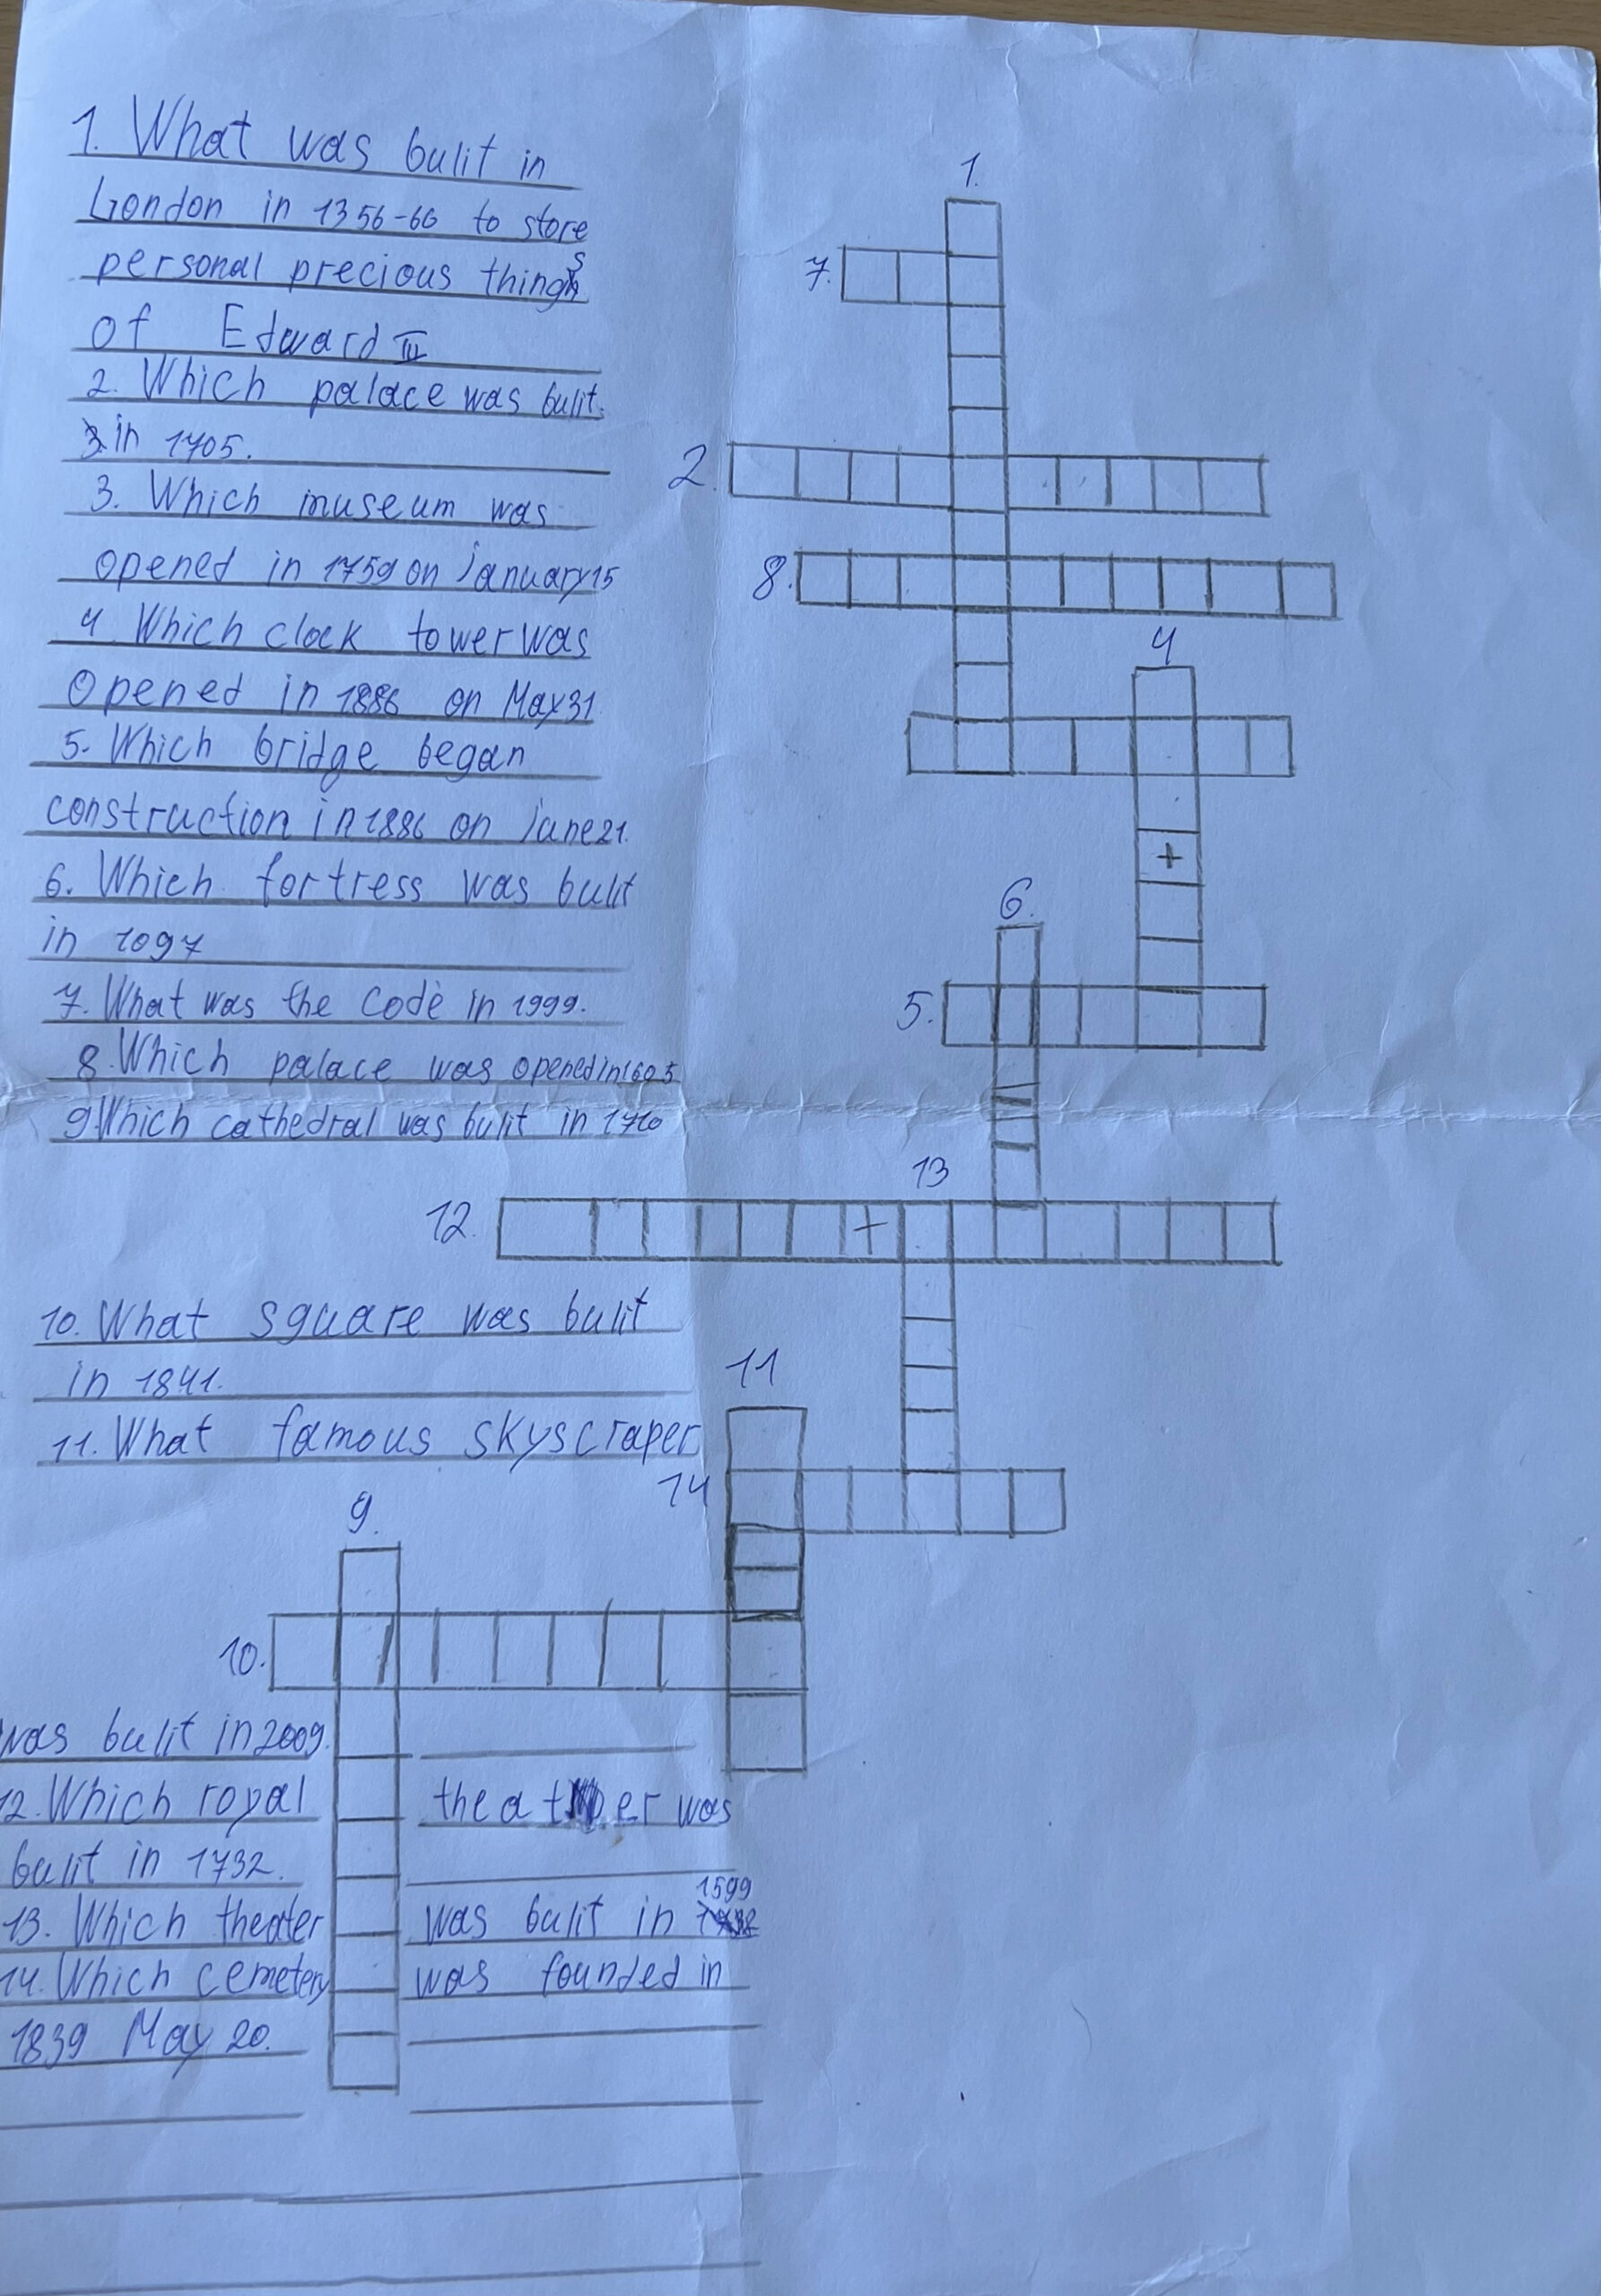 1. What was bulit in
London in 1356-66 to store
personal precious things
of Edward III
2. Which palace was bulit
in 1705.
3. Which museum was
opened in 1759 on january15
4 Which clock tower was
Opened in 1886 on May31
5. Which bridge began
construction in 1886 on june21.
6. Which fortress was bulit
in 1097
7. What was the code in 1999.
8 Which palace was opened in 1605
9 Which cathedral was bulit in 1710
10. What square was bulit
in 1841.
11. What famous skyscraper
was bulit in 2009.
12. Which royal theater was
bulit in 1732.
13. Which theater was bulit in 1599
14. Which cemetery was founded in
1839 May 20.
1.
7.
2.
8.
4
+
6.
5.
13
12.
+
11
14
9.
10.